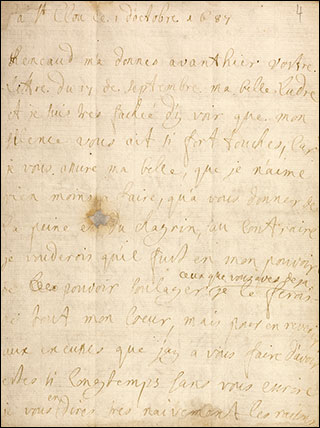 a St Clou le 1 doctobre 1687 4
Rencaud ma donnes avanthier vostre
lettre du 17 de septembre ma belle Ludre
et je suis tres fachée dy voir que mon
silence vous ait si fort touchée, Car
je vous assure ma belle, que je naime
rien moins a faire, qua vous donner de
la peine et du chagrin, au contraire
je vouderois quil fust en mon pouvoir
de pouvoir soulager ceux que vous avez desja je le ferois
de tout mon Coeur, mais pour en revenir
aux excuses que jay a vous faire davoir
estes si longtemps sans vous escrire
je vous en diray tres naivement les raisons